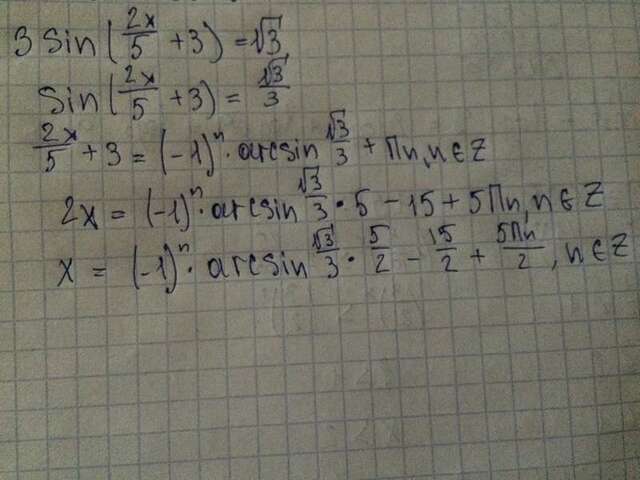 3 sin (2x/5 + 3) = √3
Sin (2x/5 + 3) = √3/3
2x/5 + 3 = (-1)ⁿ · arcsin √3/3 + Πn, n ∈ Z
2x = (-1)ⁿ · arcsin √3/3 · 5 - 15 + 5Πn, n ∈ Z
x = (-1)ⁿ · arcsin √3/3 · 5/2 - 15/2 + 5Πn/2, n ∈ Z